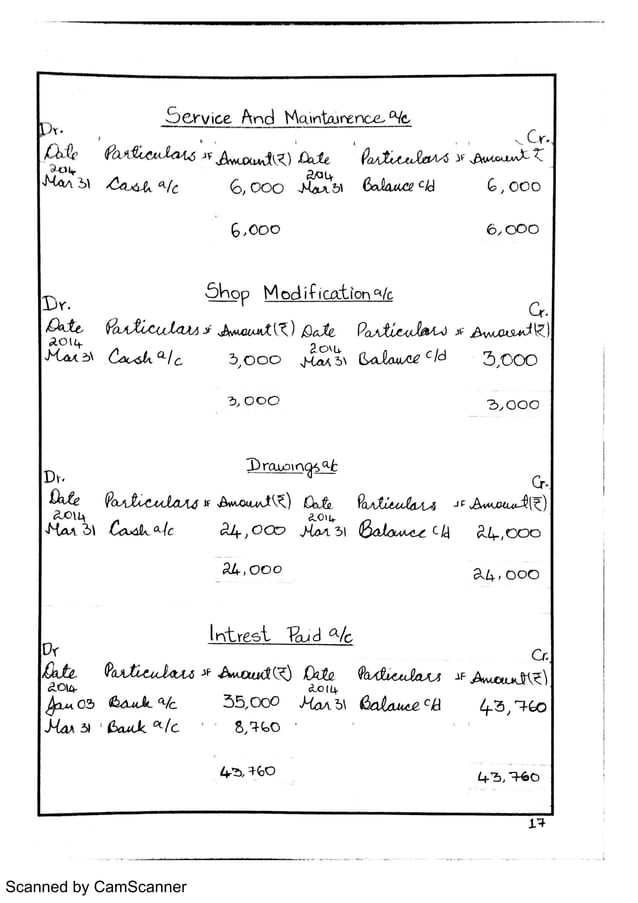 Service And Maintainence a/c
Dr. Cr.
Date Particulars JF Amount(₹) Date Particulars JF Amount ₹
2014 2014
Mar 31 Cash a/c 6,000 Mar 31 Balance c/d 6,000
6,000 6,000
Shop Modification a/c
Dr. Cr.
Date Particulars JF Amount(₹) Date Particulars JF Amount(₹)
2014 2014
Mar 31 Cash a/c 3,000 Mar 31 Balance c/d 3,000
3,000 3,000
Drawings a/c
Dr. Cr.
Date Particulars JF Amount(₹) Date Particulars JF Amount(₹)
2014 2014
Mar 31 Cash a/c 24,000 Mar 31 Balance c/d 24,000
24,000 24,000
Intrest Paid a/c
Dr Cr.
Date Particulars JF Amount(₹) Date Particulars JF Amount(₹)
2014 2014
Jan 03 Bank a/c 35,000 Mar 31 Balance c/d 43,760
Mar 31 Bank a/c 8,760
43,760 43,760
17
Scanned by CamScanner